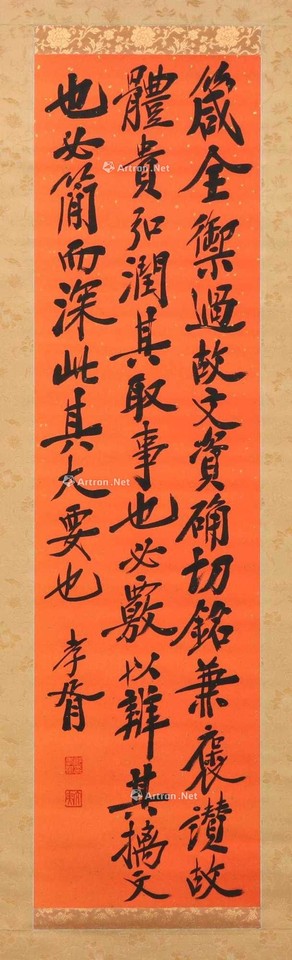 箴全禦過故文資确切銘兼褒讚故
體貴弘潤其取事也必覈以辯其摛文
也必簡而深此其大要也
孝胥
Artron.Net
Artron.Net
Artron.Net
Artron.Net